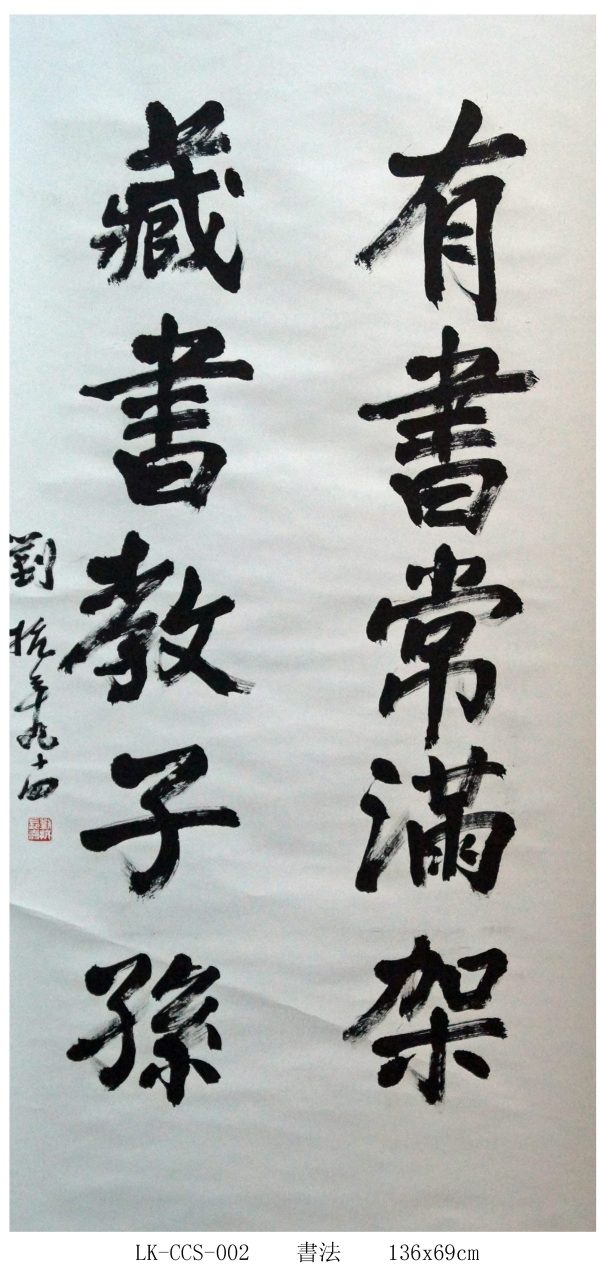 有書常滿架
藏書教子孫
劉抗年九十四
LK-CCS-002 書法 136x69cm